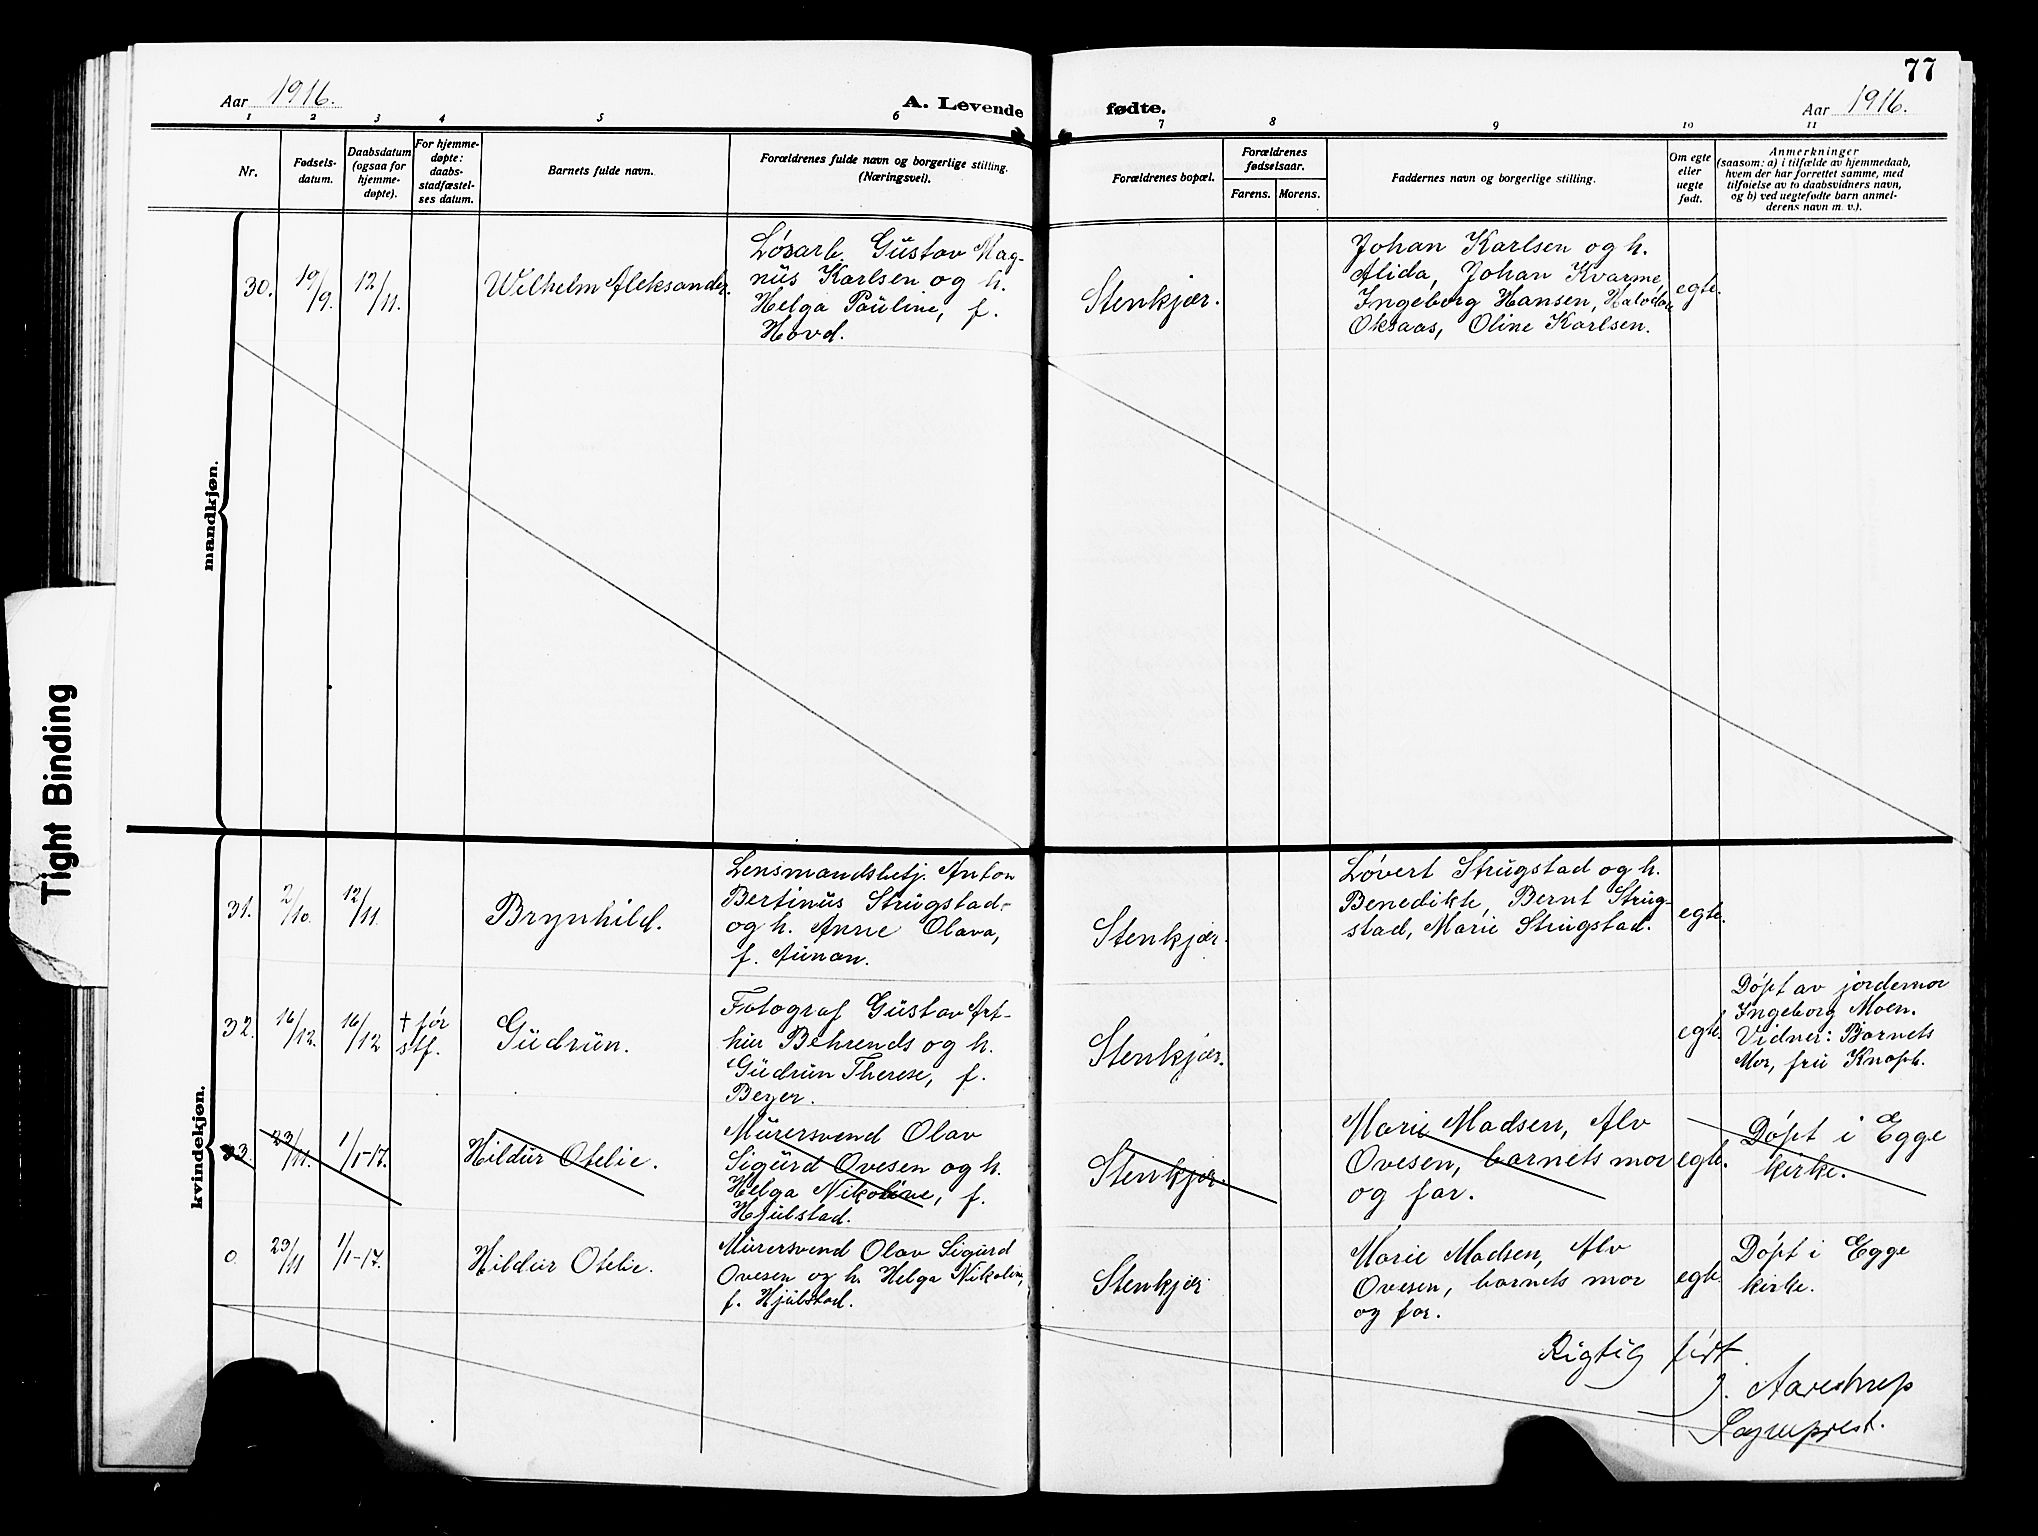 77
Aar 1916.
A. Levende fødte.
Aar 1916.
1 2 3 4 5 6 7 8 9 10 11
Nr.
Fødsels-
datum.
Daabsdatum
(ogsaa for
hjemme-
døpte).
For hjemme-
døpte:
daabs-
stadfæstel-
ses datum.
Barnets fulde navn.
Forældrenes fulde navn og borgerlige stilling.
(Næringsvei).
Forældrenes bopæl.
Forældrenes
fødselsaar.
Farens. Morens.
Faddernes navn og borgerlige stilling.
Om egte
eller
uegte
født.
Anmerkninger
(saasom: a) i tilfælde av hjemmedaab,
hvem der har forrettet samme, med
tilføielse av to daabsvidners navn,
og b) ved uegtefødte barn anmel-
derens navn m. v.).
mandkjøn.
30.
19/9.
12/11.
Wilhelm Aleksander.
Løsarb. Gustav Mag-
nus Karlsen og h.
Helga Pauline, f.
Hovd.
Stenkjær.
Johan Karlsen og h.
Alida, Johan Kvarme,
Ingeborg Hansen, Halvdan
Oksaas, Oline Karlsen.
egte.
Tight Binding
kvindekjøn.
31.
2/10.
12/11.
Brynhild.
Lensmandsbetj. Anton
Bertinus Strugstad
og h. Anne Olava,
f. Aunan.
Stenkjær.
Løvert Strugstad og h.
Benedikte, Bernt Strug-
stad, Marie Strugstad.
egte.
32.
16/12.
16/12
† før
stf.
Gudrun.
Fotograf Gustav Art-
hur Behrends og h.
Gudrun Therese, f.
Beyer.
Stenkjær.
egte.
Døpt av jordemor
Ingeborg Moen.
Vidner: Barnets
Mor, fru Knoph.
33.
23/11.
1/1-17.
Hildur Otelie.
Murersvend Olav
Sigurd Ovesen og h.
Helga Nikoline, f.
Hjulstad.
Stenkjær.
Marie Madsen, Alv
Ovesen, barnets mor
og far.
egte.
Døpt i Egge
kirke.
0
23/11
1/1-17.
Hildur Otelie.
Murersvend Olav Sigurd
Ovesen og h. Helga Nikoline,
f. Hjulstad.
Stenkjær
Marie Madsen, Alv
Ovesen, barnets mor
og far.
egte.
Døpt i Egge
kirke.
Rigtig ført
J. Aarestrup
Sogneprest.